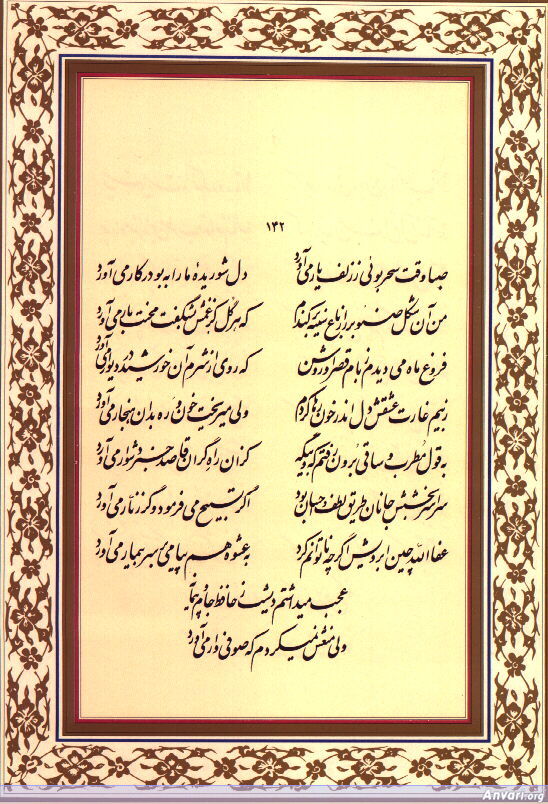 ۱۴۲
صبا وقت سحر بوئی ز زلف یار می آورد دل شوریدهٔ ما را به بو در کار می آورد
من آن شکل صنوبر را ز باغ سینه برکندم که هر گل کز غمش بشکفت محنت بار می آورد
فروغ ماه می دیدم ز بام قصر او روشن که روی از شرم آن خورشید در دیوار می آورد
ز بیم غارت عشقش دل اندر خون رها کردم ولی میریخت خون و ره بدان هنجار می آورد
به قول مطرب و ساقی برون رفتم گه و بیگه کزان راه گران قاصد خبر دشوار می آورد
سراسر بخشش جانان طریق لطف و احسان بود اگر تسبیح می فرمود و گر زنار می آورد
عفا الله چین ابرویش اگرچه ناتوانم کرد به عشوه هم پیامی بر سر بیمار می آورد
عجب میداشتم دیشب ز حافظ جام و پیمانه
ولی منعش نمیکردم که صوفی وار می آورد
Anvari.org